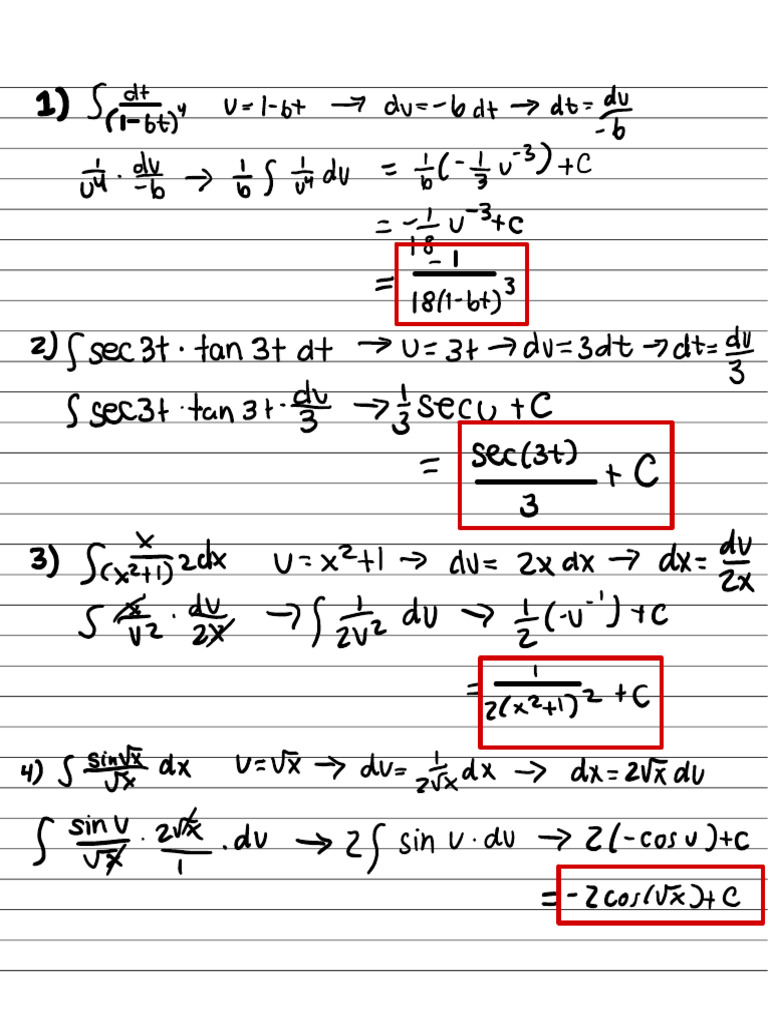 1) ∫ dt/(1-6t)⁴  u = 1-6t → du = -6 dt → dt = du/-6
1/u⁴ · du/-6 → 1/6 ∫ 1/u⁴ du = 1/6(-1/3 u⁻³) + C
= -1/18 u⁻³ + C
= -1/18(1-6t)³
2) ∫ sec3t · tan3t dt → u = 3t → du = 3dt → dt = du/3
∫ sec3t · tan3t · du/3 → 1/3 sec u + C
= sec(3t)/3 + C
3) ∫ x/(x²+1)² dx  u = x²+1 → du = 2x dx → dx = du/2x
∫ x/u² · du/2x → ∫ 1/2u² du → 1/2(-u⁻¹) + C
= 1/2(x²+1)² + C
4) ∫ sin√x/√x dx  u = √x → du = 1/2√x dx → dx = 2√x du
∫ sin u/√x · 2√x/1 · du → 2∫ sin u · du → 2(-cos u) + C
= -2cos(√x) + C